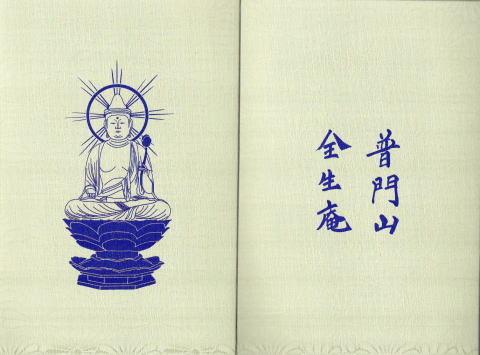 普門山
全生庵